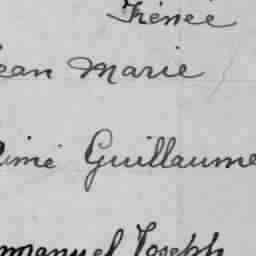 Irénée
ean Marie
Aimé Guillaume
manuel Joseph